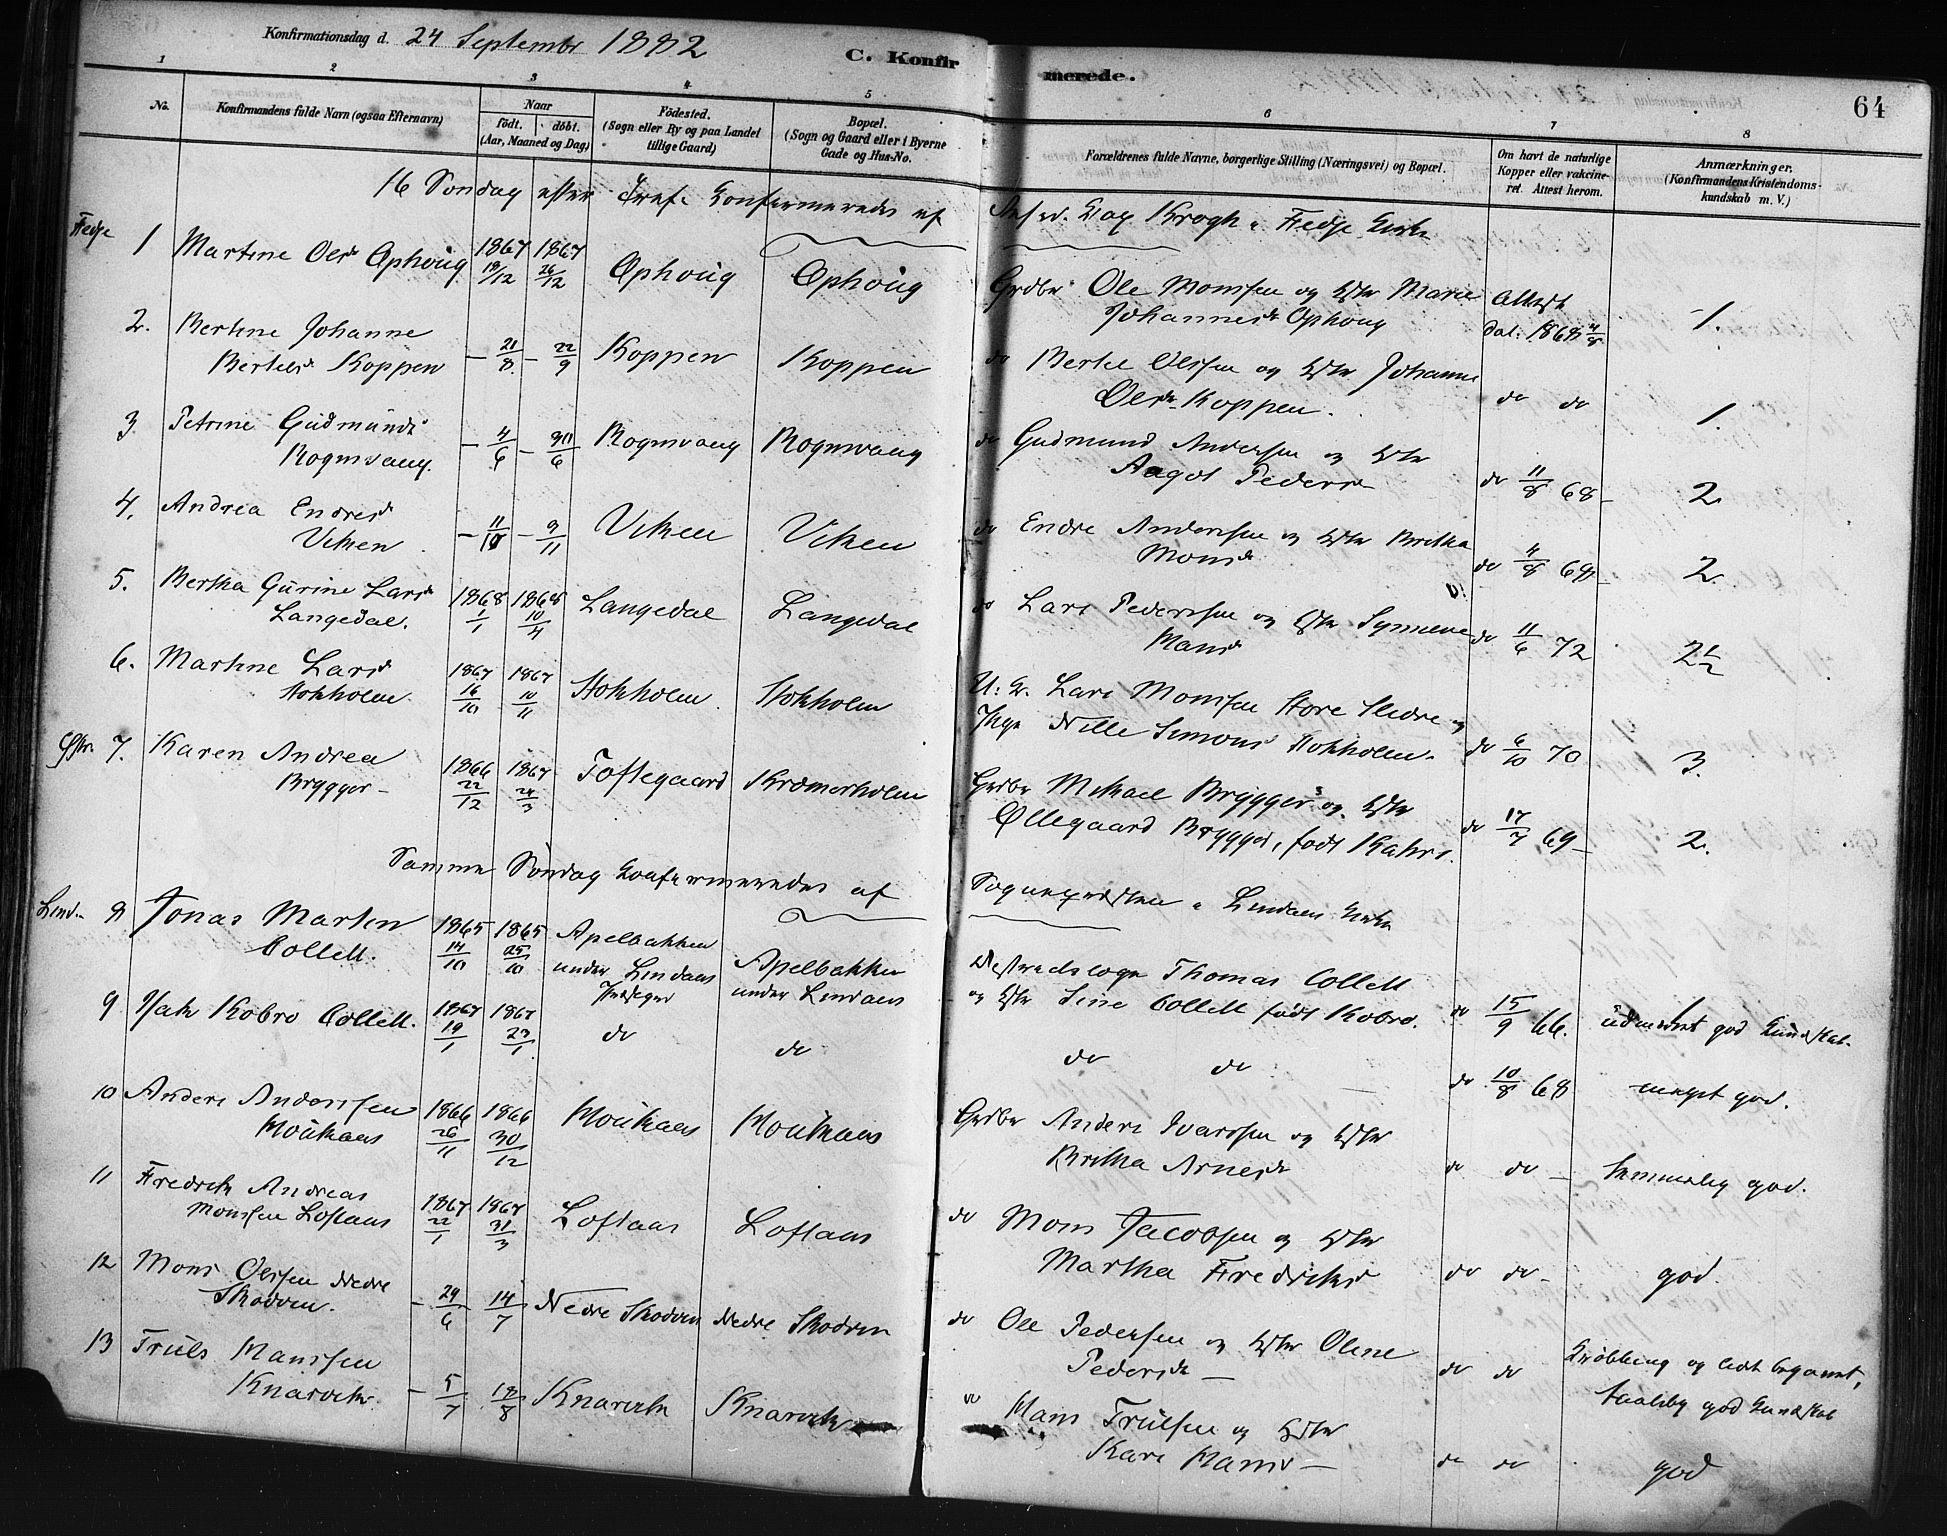 Konfirmationsdag d. 24 Septembr 1882
C. Konfirmerede.
64
1 2 3 4 5 6 7 8
No.
Konfirmandens fulde Navn (ogsaa Efternavn)
Naar
født. døbt.
(Aar, Maaned og Dag)
Födested.
(Sogn eller By og paa Landet
tillige Gaard)
Bopæl.
(Sogn og Gaard eller i Byerne
Gade og Hus-No.
Forældrenes fulde Navne, borgerlige Stilling (Næringsvei) og Bopæl.
Om havt de naturlige
Kopper eller vakcine-
ret. Attest herom.
Anmærkninger,
(Konfirmandens Kristendoms-
kundskab m. V.)
16 Søndag efter Tref. Konfirmeredes af
Kap Krogh i Hedje Kirke
1 Martine Olsdr Ophoug 1867 19/12 1867 26/12 Ophoug Ophoug
Grdbr Ole Monssen og Hstr Marie
Johannesdr Ophoug
Attest
dat. 1868 4/8
1.
2. Bertine Johanne
Bertelsdr Koppen – 21/8 – 22/9 Koppen Koppen
do Bertel Olssen og Hstr Johanne
Olsdr Koppen.
do do
1.
3 Petrine Gudmunds
Rognvaag. – 4/6 – 30/6 Rognvaag Rognvaag
do Gudmund Andersen og Hstr
Aagot Pedersdr
do 11/8 68 –
2
4. Andrea Endresdr
Viken – 11/10 – 9/11 Viken Viken
do Endre Anderssen og Hstr Britha
Monsdr
do 4/8 68 –
2
5. Bertha Gurine Larsdr
Langedal. 1868 1/1 1868 10/4 Langedal Langedal
do Lars Pederssen og Hstr Synneve
Mansdr
do 11/6 72
2½
6. Martine Larsdr
Stokholm. 1867 16/10 1867 10/11 Stokholm. Stokholm
U. K. Lars Monssen Store Hedre og
Pige Nille Simons Stokholm.
do 6/10 70
3.
7. Karen Andrea
Brygger – 1866 22/12 1867 24/3 Toftegaard Kræmerholm
Grdbr Mikael Brygger og Hstr
Øllegaard Brygger, født Kahrs.
do 17/7 69 –
2.
Samme Søndag Konfirmeredes af
Sognepresten i Lindaas Kirke
Lind. 8 Jonas Martin
Collett. 1865 14/10 1865 25/10 Apelbakken
under Lindaas
Prestegrd
Apelbakken
under Lindaas
Distriktslæge Thomas Collett
og Hstr Sine Collett født Kobro.
do 15/9 66.
udmerket god Kundskab.
9 Isak Kobro Collett. 1867 19/1 1867 23/1 do do
do do
do 10/8 68
meget god.
10 Anders Anderssen
Moukaas 1866 26/11 1866 30/12 Moukaas Moukaas
Grdbr Anders Ivarssen og Hstr
Britha Arnesdr
do do –
temmelig god.
11 Fredrik Andreas
Monssen Loftaas 1867 22/1 1867 31/3 Loftaas Loftaas
do Mons Jacobsen og Hstr
Martha Fredriksdr
do do –
god.
12 Mons Olssen Nedre
Skodven. – 29/6 14/7 Nedre Skodven Nedre Skodven
do Ole Pedersen og Hstr Oline
Pedersdr –
do do
Krøbling og lidt begavet,
taalelig god Kundskab
13 Truls Manssen
Knarvik. – 5/7 18/8 Knarvik Knarvik
do Mans Trulsen og Hstr
Kari Mans –
do do
god